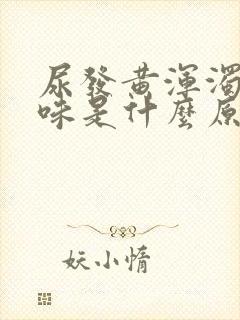 尿發黃渾濁
味是什麼原
妖小惰